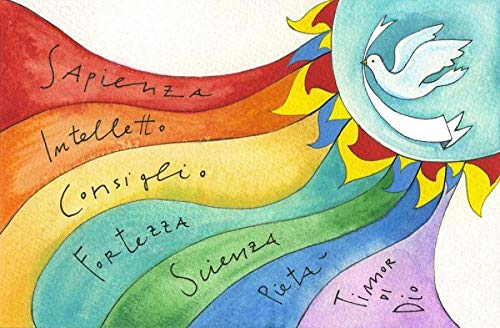 Sapienza
Intelletto
Consiglio
Fortezza
Scienza
Pietà
Timor
di
Dio